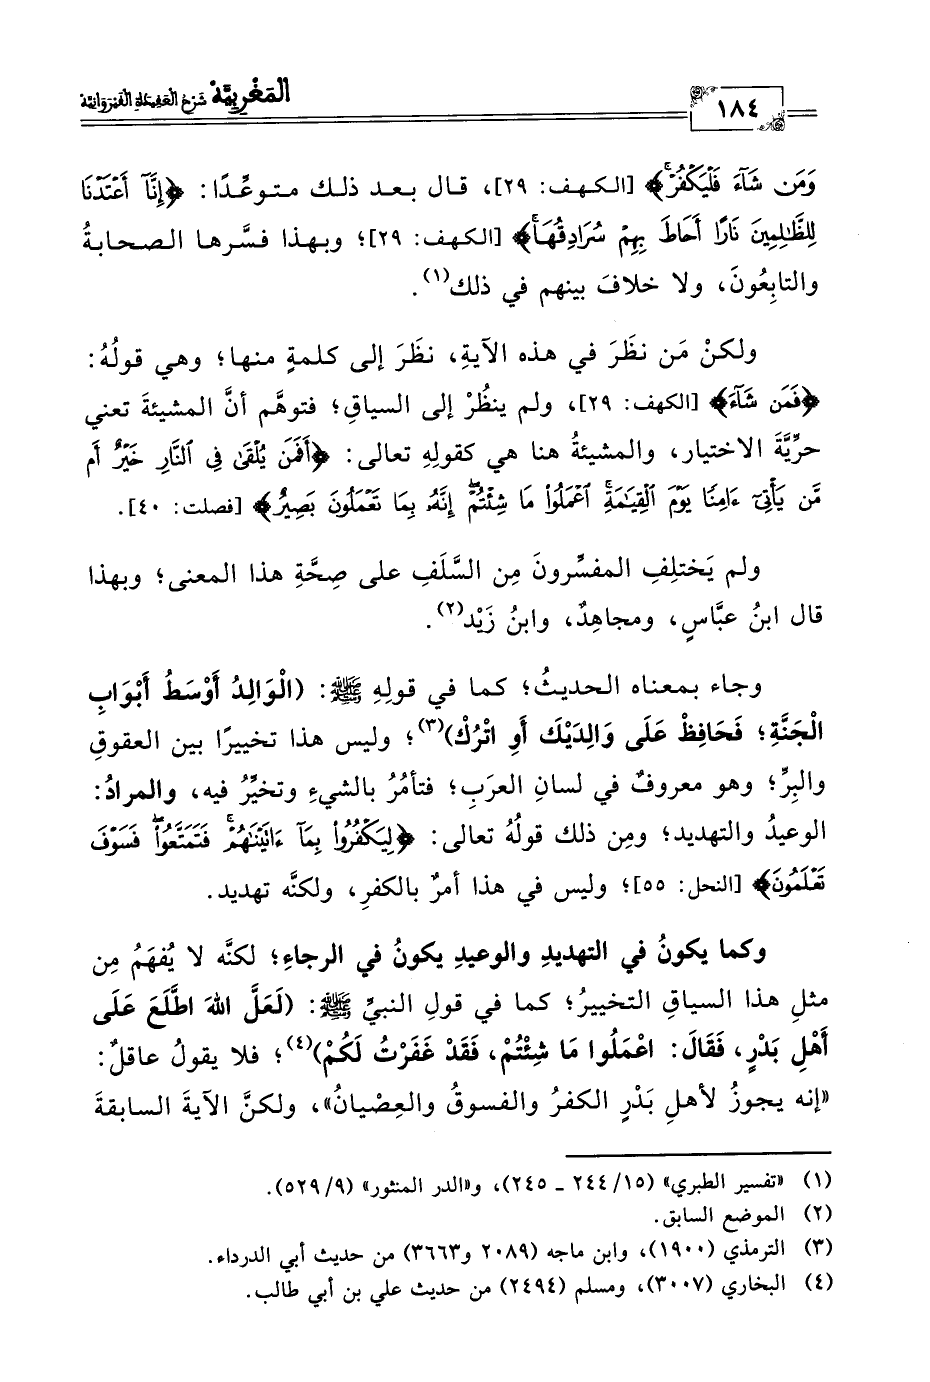 المَغْرِبيَّة شَرْحُ العَقِيدَةِ القَيْرَوَانِيَّة
١٨٤
وَمَن شَآءَ فَلْيَكْفُرْۚ﴾ [الكهف: ٢٩]، قال بعد ذلك متوعِّدًا: ﴿إِنَّآ أَعْتَدْنَا
لِلظَّٰلِمِينَ نَارًا أَحَاطَ بِهِمْ سُرَادِقُهَاۚ﴾ [الكهف: ٢٩]؛ وبهذا فسَّرها الصحابةُ
والتابِعُونَ، ولا خلافَ بينهم في ذلك(١).
ولكنْ مَن نظَرَ في هذه الآيةِ، نظَرَ إلى كلمةٍ منها؛ وهي قولُهُ:
﴿فَمَن شَآءَ﴾ [الكهف: ٢٩]، ولم ينظُرْ إلى السياقِ؛ فتوهَّم أنَّ المشيئةَ تعني
حرِّيَّةَ الاختيار، والمشيئةُ هنا هي كقولِهِ تعالى: ﴿أَفَمَن يُلْقَىٰ فِى ٱلنَّارِ خَيْرٌ أَم
مَّن يَأْتِىٓ ءَامِنًا يَوْمَ ٱلْقِيَٰمَةِۚ ٱعْمَلُوا۟ مَا شِئْتُمْۖ إِنَّهُۥ بِمَا تَعْمَلُونَ بَصِيرٌ﴾ [فصلت: ٤٠].
ولم يَختلِفِ المفسِّرونَ مِن السَّلَفِ على صِحَّةِ هذا المعنى؛ وبهذا
قال ابنُ عبَّاسٍ، ومجاهِدٌ، وابنُ زَيْد(٢).
وجاء بمعناه الحديثُ؛ كما في قولِهِ ﷺ: (الْوَالِدُ أَوْسَطُ أَبْوَابِ
الْجَنَّةِ؛ فَحَافِظْ عَلَى وَالِدَيْكَ أَوِ اتْرُكْ)(٣)؛ وليس هذا تخييرًا بين العقوقِ
والبِرِّ؛ وهو معروفٌ في لسانِ العرَبِ؛ فتأمُرُ بالشيءِ وتخيِّرُ فيه، والمرادُ:
الوعيدُ والتهديد؛ ومِن ذلك قولُهُ تعالى: ﴿لِيَكْفُرُوا۟ بِمَآ ءَاتَيْنَٰهُمْۚ فَتَمَتَّعُوا۟ۖ فَسَوْفَ
تَعْلَمُونَ﴾ [النحل: ٥٥]؛ وليس في هذا أمرٌ بالكفرِ، ولكنَّه تهديد.
وكما يكونُ في التهديدِ والوعيدِ يكونُ في الرجاءِ؛ لكنَّه لا يُفهَمُ مِن
مثلِ هذا السياقِ التخييرُ؛ كما في قولِ النبيِّ ﷺ: (لَعَلَّ اللهَ اطَّلَعَ عَلَى
أَهْلِ بَدْرٍ، فَقَالَ: اعْمَلُوا مَا شِئْتُمْ، فَقَدْ غَفَرْتُ لَكُمْ)(٤)؛ فلا يقولُ عاقلٌ:
«إنه يجوزُ لأهلِ بَدْرٍ الكفرُ والفسوقُ والعِصْيانُ»، ولكنَّ الآيةَ السابقةَ
(١) «تفسير الطبري» (١٥/ ٢٤٤ ـ ٢٤٥)، و«الدر المنثور» (٩/ ٥٢٩).
(٢) الموضع السابق.
(٣) الترمذي (١٩٠٠)، وابن ماجه (٢٠٨٩ و٣٦٦٣) من حديث أبي الدرداء.
(٤) البخاري (٣٠٠٧)، ومسلم (٢٤٩٤) من حديث علي بن أبي طالب.